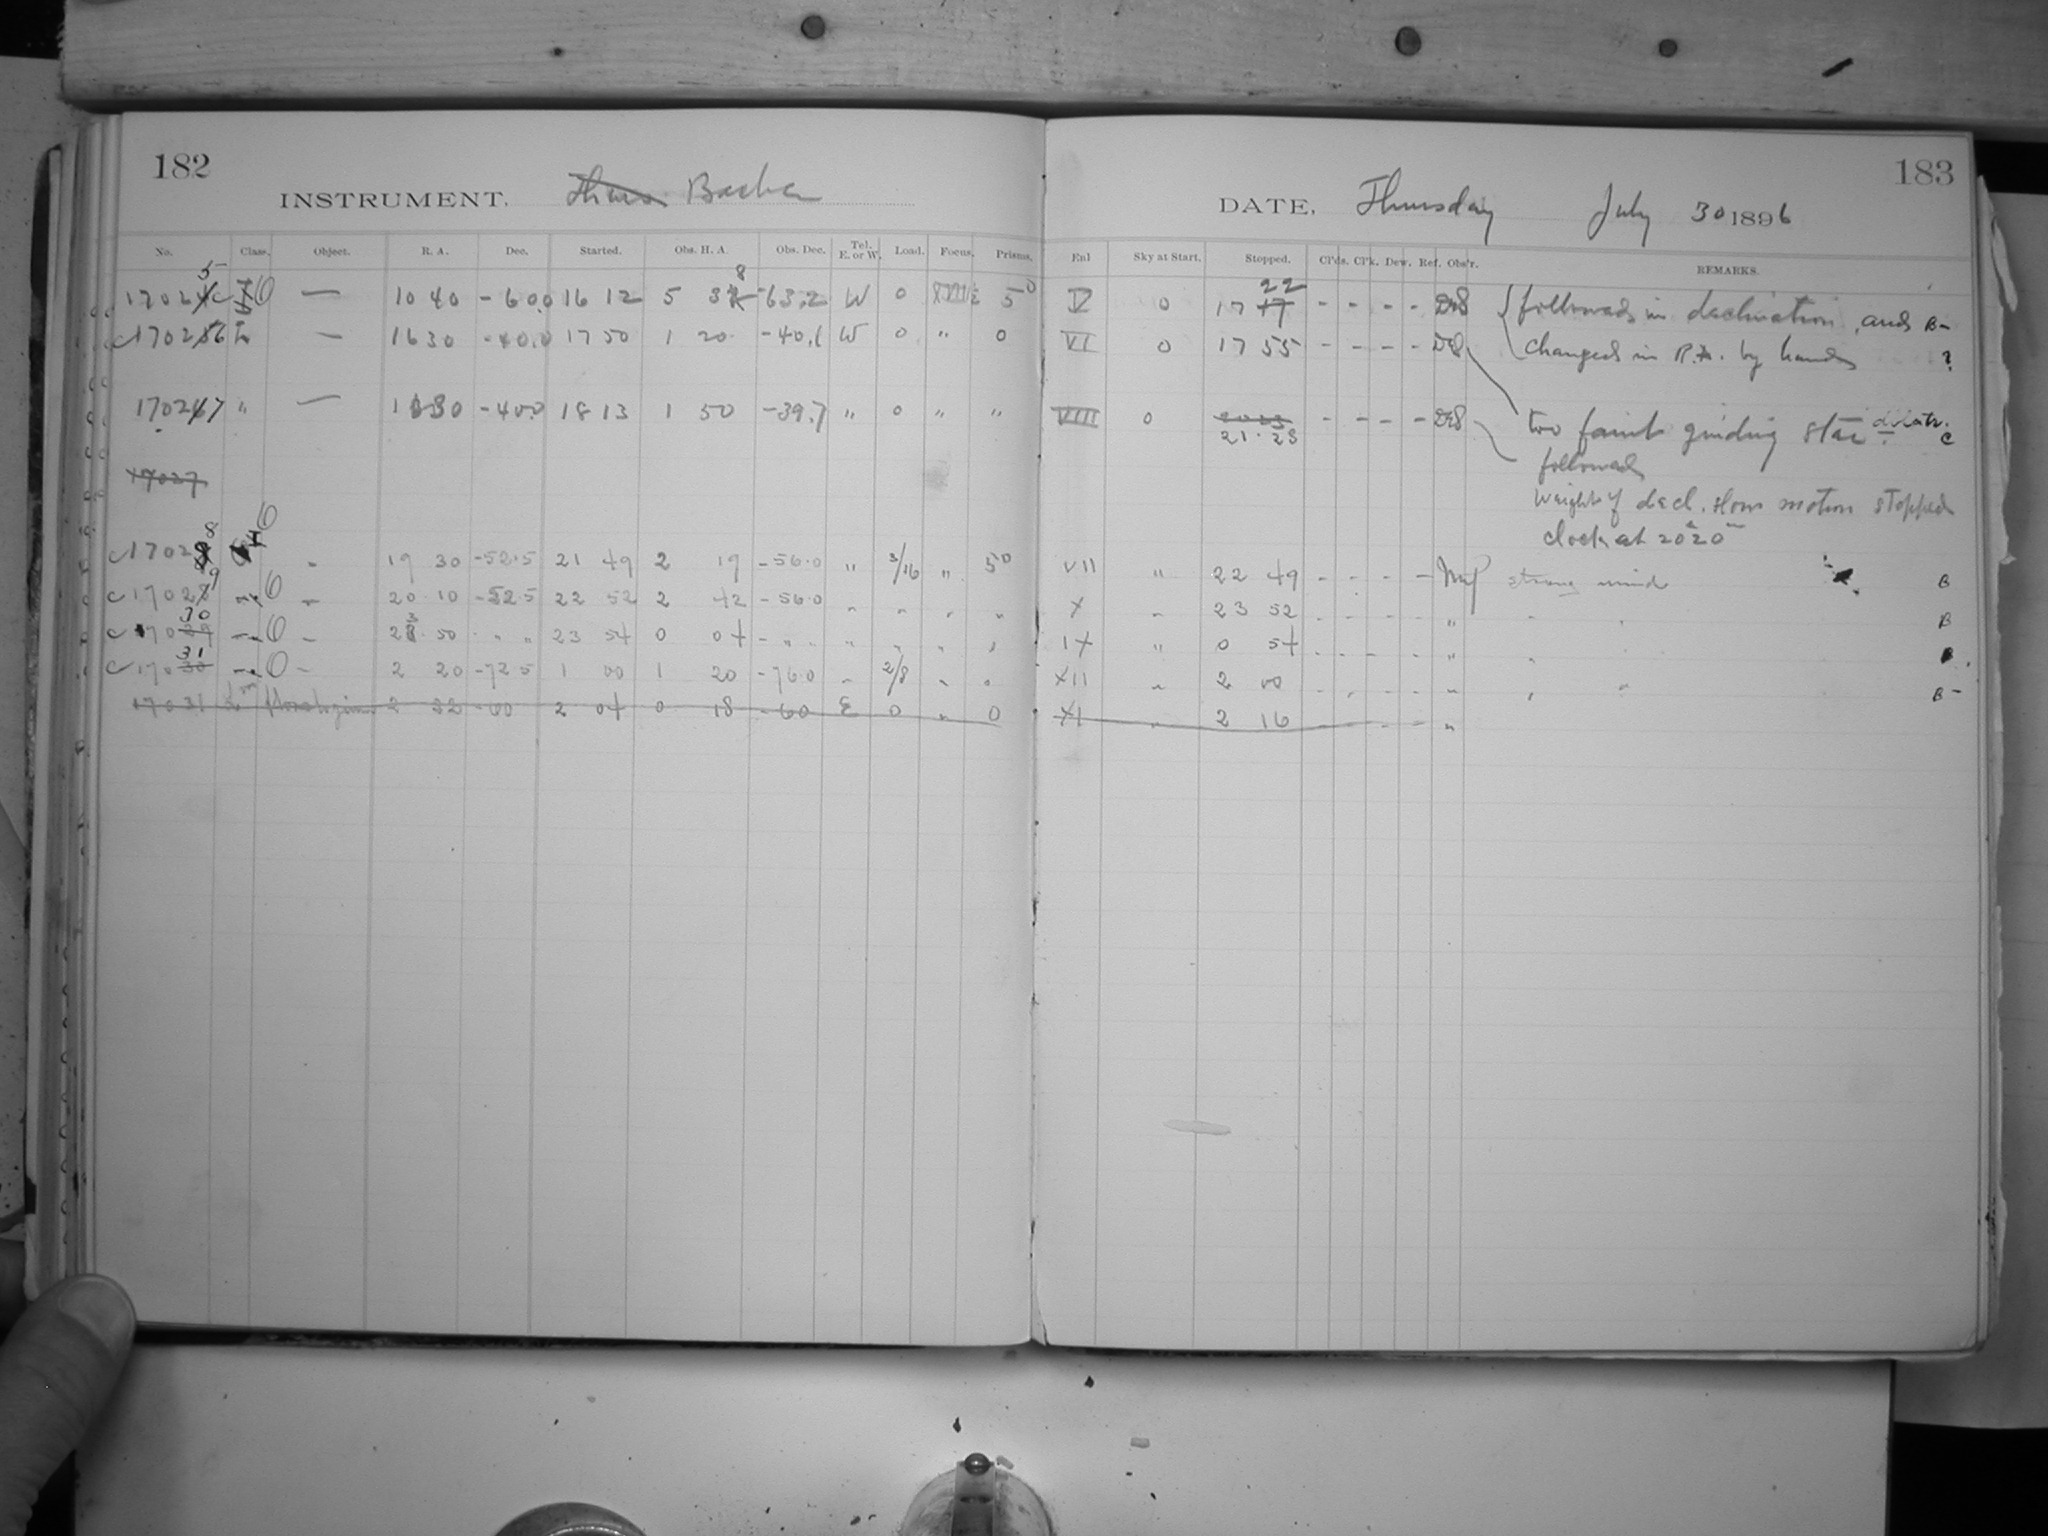 182
INSTRUMENT. Bache
No. Class. Object. R. A. Dec. Started. Obs. H. A. Obs. Dec. Tel. E. or W. Load. Focus. Prisms.
17025 — 10 40 -60.0 16 12 5 38 -63.2 W 0 5°
c 17026 — 16 30 -40.0 17 50 1 20 -40.1 W 0 " 0
17027 " — -40.0 18 13 1 50 -39.7 " 0 " "
17027
c 17028 6 - 19 30 -52.5 21 49 2 19 -56.0 " 3/16 " 5°
c 17029 6 - 20 10 -52.5 22 52 2 42 -56.0 " " " "
c 17030 6 - 23 50 " " 23 54 0 04 - " " " " "
c 17031 6 - 2 20 -72.5 1 00 1 20 -76.0 " 2/8 " "
17031 Horologium 2 22 -60 2 04 0 18 -60 E 0 " 0
183
DATE, Thursday July 30 1896
Enl Sky at Start. Stopped. Cl'ds. Cl'k. Dew. Ref. Obs'r. REMARKS.
V 0 17 22 - - - - followed in declination, and B-
VI 0 17 55 - - - - changed in R.A. by hand ?
VIII 0 21 23 - - - - too faint guiding star C
followed
Weight of decl. slow motion stopped
clock at 20 20
VII " 22 49 - - - - strong wind B
X " 23 52 - - - - " " " B
IX " 0 54 - - - - " " "
XII " 2 00 - - - - " " " B-
XI " 2 16 - - "